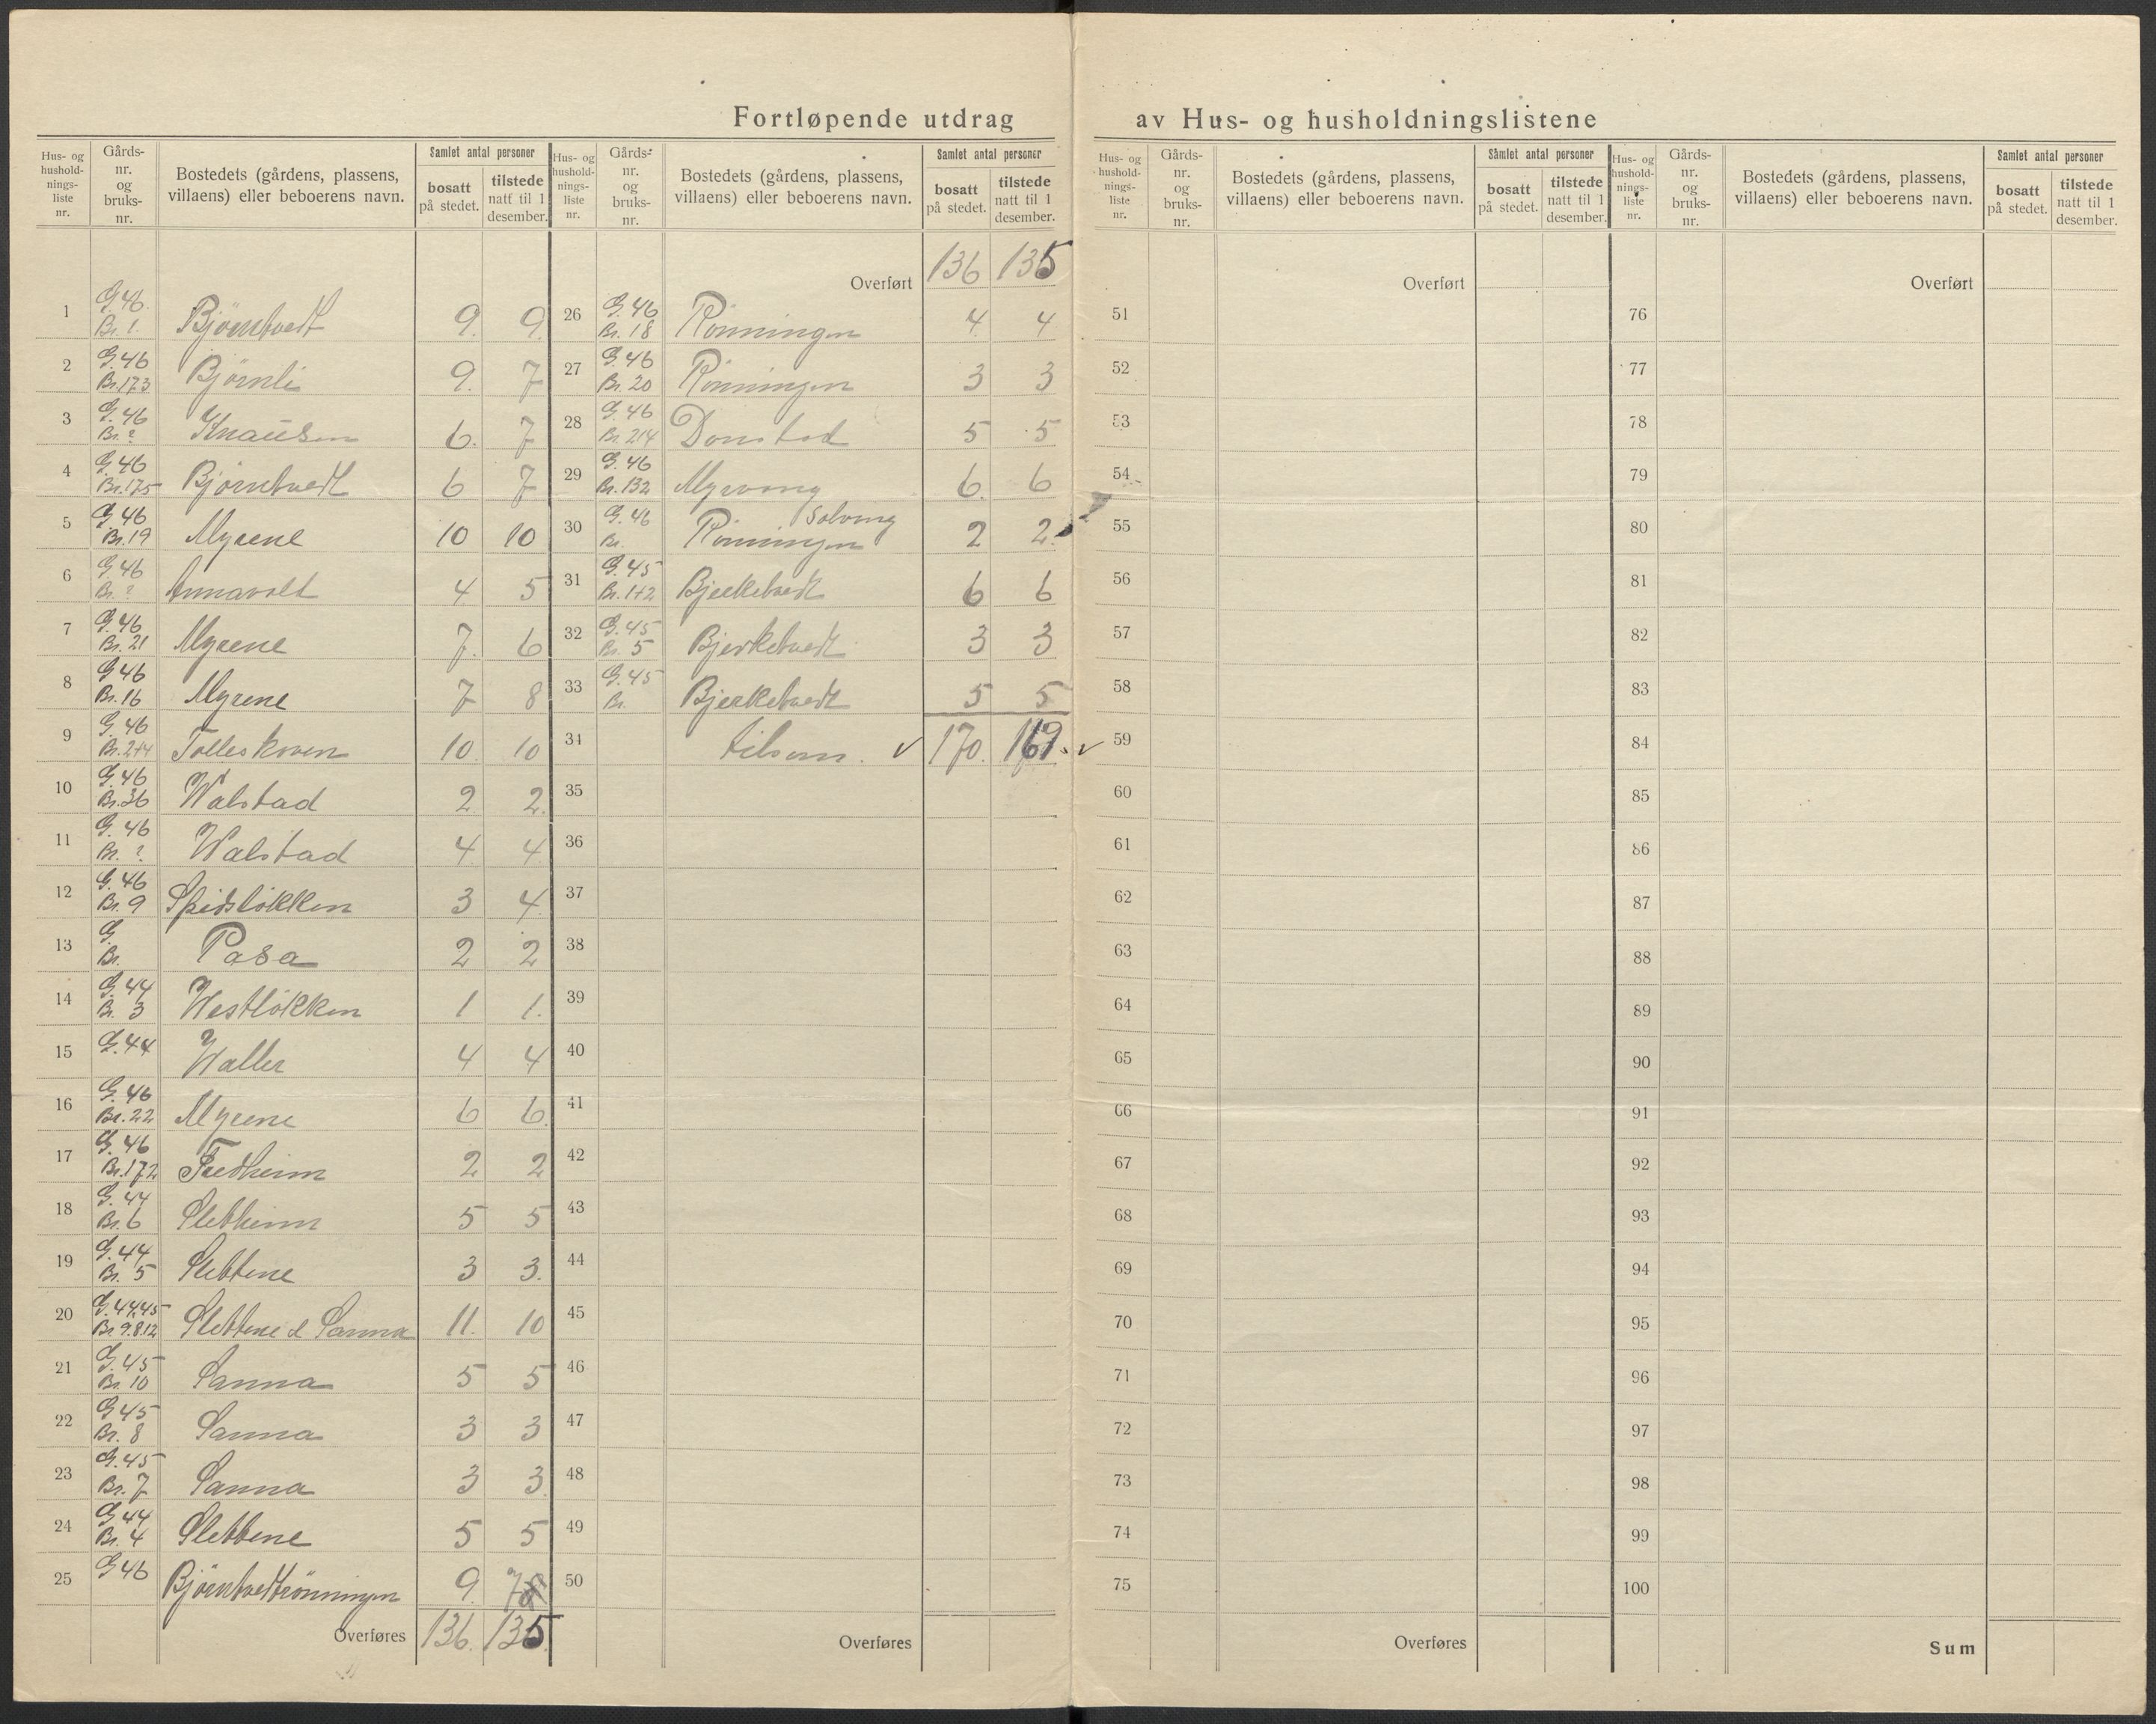 Fortløpende utdrag av Hus- og husholdningslistene
Hus- og hushold-nings-liste nr. | Gårds-nr. og bruks-nr. | Bostedets (gårdens, plassens, villaens) eller beboerens navn. | Samlet antal personer | bosatt på stedet. | tilstede natt til 1 desember.
1 G.46. Br. 1. Björntvedt 9. 9.
2 G.46 Br.173 Björnli 9. 7
3 G.46 Br. ? Knausen 6. 7
4 G.46 Br.175 Björntvedt 6 7
5 G.46 Br.19 Myrene 10 10
6 G.46 Br. ? Annavold 4. 5
7 G.46 Br. 21 Myrene 7. 6
8 G.46 Br.16 Myrene 7 8
9 G.46 Br.2+4 Tolleskoven 10. 10
10 G.46 Br.36 Walstad 2 2.
11 G.46 Br. ? Walstad 4. 4
12 G.46 Br. 9 Spidslökken 3 4
13 G. Br. Pasa 2 2
14 G.44 Br. 3 Westlökken 1 1.
15 G.44 Waller 4 4
16 G.46 Br.22 Myrene 6 6.
17 G.46 Br.172 Fredheim 2 2
18 G.44 Br.6 Sletheim 5 5
19 G.44 Br. 5 Slettene 3 3.
20 G.44,45 Br 9.8.12 Slettene & Sanna 11. 10
21 G.45 Br. 10 Sanna 5 5
22 G45 Br. 8 Sanna 3 3
23 G.45 Br. 7 Sanna 3 3.
24 G.44 Br. 4 Slettene 5 5
25 G46 Björntvedtrönningen 9.
Overføres 136. 135.
Hus- og hushold-nings-liste nr. | Gårds-nr. og bruks-nr. | Bostedets (gårdens, plassens, villaens) eller beboerens navn. | Samlet antal personer | bosatt på stedet. | tilstede natt til 1 desember.
Overført 136 135
26 G.46 Br. 18 Rönningen 4. 4
27 G.46 Br. 20 Rönningen 3 3
28 G.46 Br. 214 Donstad 5 5
29 G.46 Br. 132 Myrvang 6. 6
30 G.46 Br. Rönningen Solvang 2 2.
31 G.45 Br. 1+2 Bjerketvedt 6 6
32 G.45 Br. 5 Bjerketvedt 3 3
33 G.45 Br. Bjerketvedt 5 5
34 tilsam. ✓ 170. 169. ✓
35
36
37
38
39
40
41
42
43
44
45
46
47
48
49
50
Overføres
Hus- og hushold-nings-liste nr. | Gårds-nr. og bruks-nr. | Bostedets (gårdens, plassens, villaens) eller beboerens navn. | Samlet antal personer | bosatt på stedet. | tilstede natt til 1 desember.
Overført
51
52
53
54
55
56
57
58
59
60
61
62
63
64
65
66
67
68
69
70
71
72
73
74
75
Overføres
Hus- og hushold-nings-liste nr. | Gårds-nr. og bruks-nr. | Bostedets (gårdens, plassens, villaens) eller beboerens navn. | Samlet antal personer | bosatt på stedet. | tilstede natt til 1 desember.
Overført
76
77
78
79
80
81
82
83
84
85
86
87
88
89
90
91
92
93
94
95
96
97
98
99
100
Sum